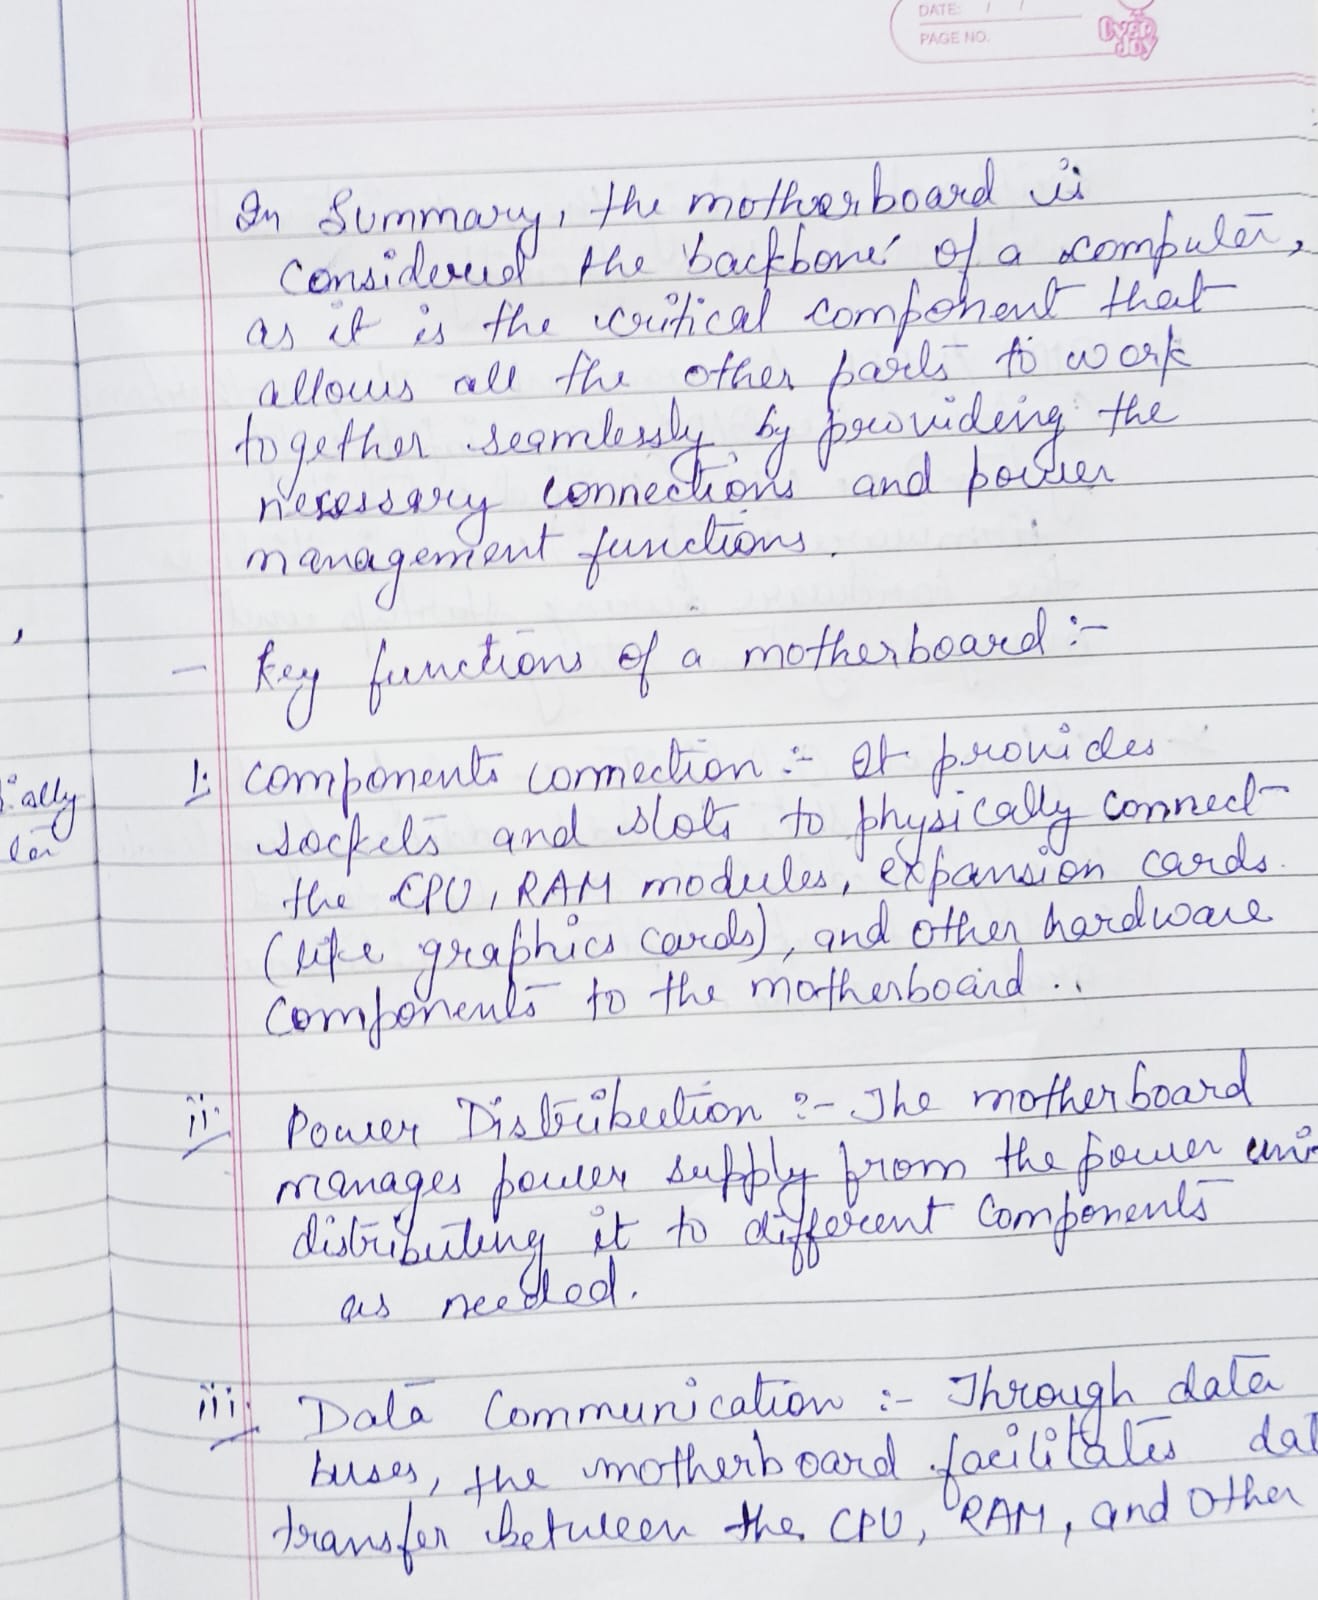 DATE: / /
PAGE NO.
Over Joy
In Summary, the motherboard is
considered the 'backbone' of a computer,
as it is the critical component that
allows all the other parts to work
together seamlessly by provideing the
necessary connections and power
management functions.
- Key functions of a motherboard :-
i. components connection :- It provides
sockets and slots to physically connect
the CPU, RAM modules, expansion cards
(like graphics cards), and other hardware
components to the motherboard ..
ii. Power Distribution :- The motherboard
manages power supply from the power uni
distributing it to different components
as needed.
iii. Data Communication :- Through data
buses, the motherboard facilitates dat
transfer between the CPU, RAM, and other